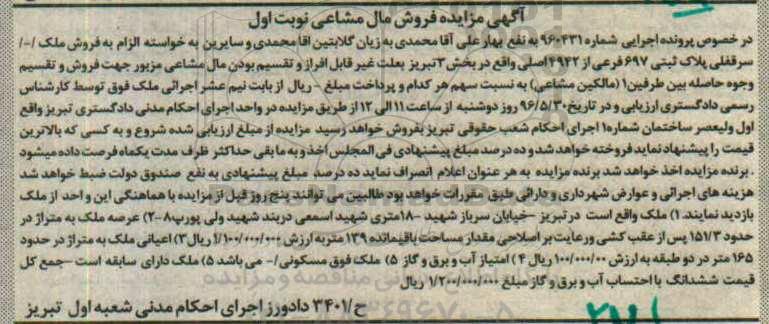 آگهی مزایده فروش مال مشاعی نوبت اول
در خصوص پرونده اجرایی شماره ۹۶۰۴۳۱ به نفع بهار علی آقا محمدی به زیان گلابتین اقا محمدی و سایرین به خواسته الزام به فروش ملک /-/
سرقفلی پلاک ثبتی ۶۹۷ فرعی از ۴۹۴۲ اصلی واقع در بخش ۳ تبریز بعلت غیر قابل افراز و تقسیم بودن مال مشاعی مزبور جهت فروش و تقسیم
وجوه حاصله بین طرفین۱ (مالکین مشاعی) به نسبت سهم هر کدام و پرداخت مبلغ - ریال از بابت نیم عشر اجرائی ملک فوق توسط کارشناس
رسمی دادگستری ارزیابی و در تاریخ ۹۶/۵/۳۰ روز دوشنبه از ساعت ۱۱ الی ۱۲ از طریق مزایده در واحد اجرای احکام مدنی دادگستری تبریز واقع
اول ولیعصر ساختمان شماره۱ اجرای احکام شعب حقوقی تبریز بفروش خواهد رسید مزایده از مبلغ ارزیابی شده شروع و به کسی که بالاترین
قیمت را پیشنهاد نماید فروخته خواهد شد و ده درصد مبلغ پیشنهادی فی المجلس اخذ و به مابقی حداکثر ظرف مدت یکماه فرصت داده میشود
. برنده مزایده اخذ خواهد شد برنده مزایده به هر عنوان اعلام انصراف نماید ده درصد مبلغ پیشنهادی به نفع صندوق دولت ضبط خواهد شد
هزینه های اجرائی و عوارض شهرداری و دارائی طبق مقررات خواهد بود طالبین می توانند پنج روز قبل از مزایده با هماهنگی این واحد از ملک
بازدید نمایند. ۱) ملک واقع است در تبریز -خیابان سرباز شهید -۱۸متری شهید اسمعی دربند شهید ولی پورپ۸-۲) عرصه ملک به متراژ در
حدود ۱۵۱/۳ پس از عقب کشی و رعایت بر اصلاحی مقدار مساحت باقیمانده ۱۳۹ متر به ارزش ۱/۱۰۰/۰۰۰/۰۰۰ ریال ۳) اعیانی ملک به متراژ در حدود
۱۶۵ متر در دو طبقه به ارزش ۱۰۰/۰۰۰/۰۰ ریال ۴) امتیاز آب و برق و گاز ۵) ملک فوق مسکونی/- می باشد ۵) ملک دارای سابقه است -جمع کل
قیمت ششدانگ با احتساب آب و برق و گاز مبلغ ۱/۲۰۰/۰۰۰/۰۰۰ ریال
ح/۳۴۰۱ دادورز اجرای احکام مدنی شعبه اول تبریز